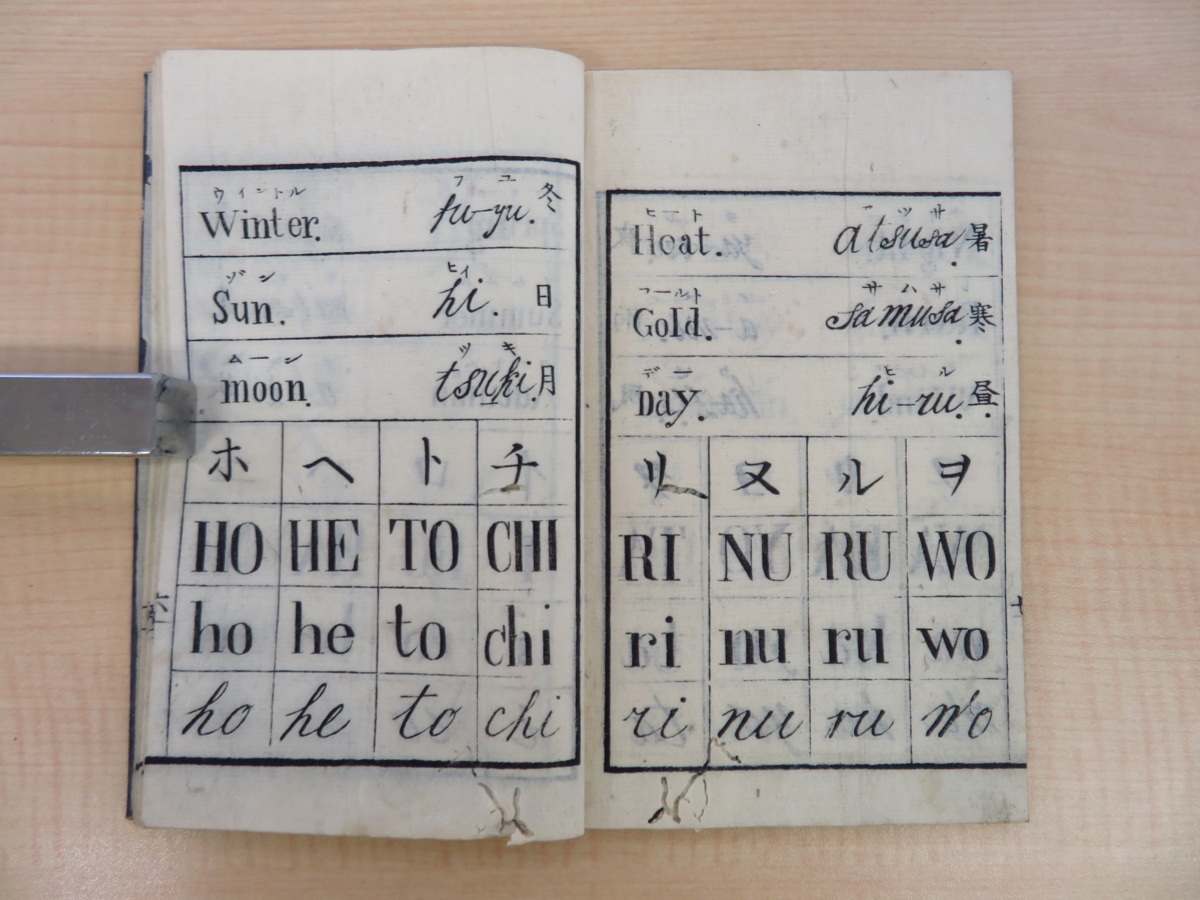 ウイントル フユ
Winter. fu-yu. 冬
ゾン ヒイ
Sun. hi. 日
ムーン ツキ
moon. tsuki. 月
ホ ヘ ト チ
HO HE TO CHI
ho he to chi
ho he to chi
六
ヒート アツサ
Heat. atsusa. 暑
コールト サムサ
Gold. samusa. 寒
デー ヒル
Day. hi-ru. 昼.
リ ヌ ル ヲ
RI NU RU WO
ri nu ru wo
ri nu ru wo